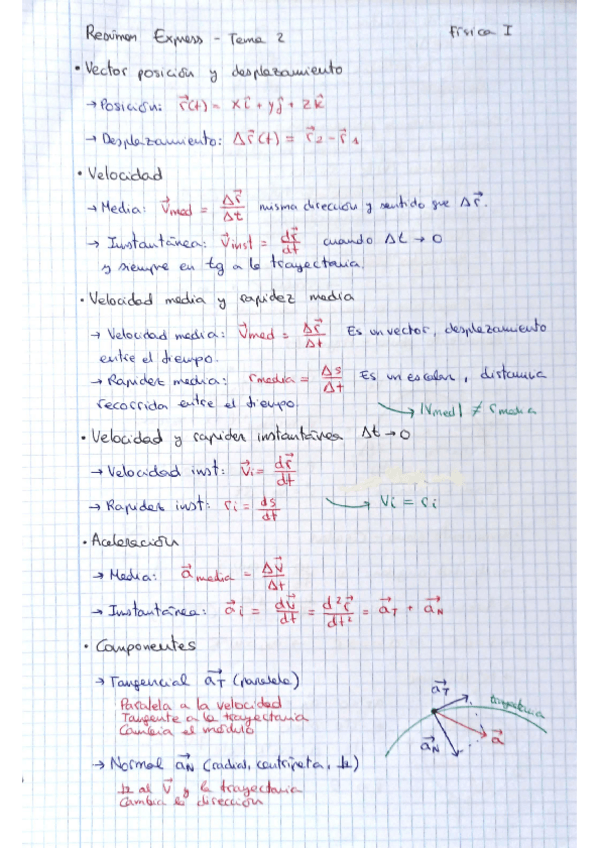 Resumen Express - Tema 2 Física I
• Vector posición y desplazamiento
→ Posición: r⃗(t) = xî + yĵ + zk̂
→ Desplazamiento: Δr⃗(t) = r⃗₂ - r⃗₁
• Velocidad
→ Media: v⃗med = Δr⃗/Δt misma dirección y sentido que Δr⃗.
→ Instantánea: v⃗inst = dr⃗/dt cuando Δt → 0
y siempre en tg a la trayectoria.
• Velocidad media y rapidez media
→ Velocidad media: v⃗med = Δr⃗/Δt Es un vector, desplazamiento
entre el tiempo.
→ Rapidez media: rmedia = Δs/Δt Es un escalar, distancia
recorrida entre el tiempo.
→ |Vmed| ≠ rmedia
• Velocidad y rapidez instantánea Δt → 0
→ Velocidad inst: v⃗i = dr⃗/dt
→ Rapidez inst: ri = ds/dt → Vi = ri
• Aceleración
→ Media: a⃗media = Δv⃗/Δt
→ Instantánea: a⃗i = dv⃗/dt = d²r⃗/dt² = a⃗T + a⃗N
• Componentes
→ Tangencial a⃗T (paralela)
Paralela a la velocidad
Tangente a la trayectoria
Cambia el módulo
→ Normal a⃗N (radial, centrípeta, ⊥)
⊥ al v⃗ y la trayectoria
Cambia la dirección
a⃗T
trayectoria
a⃗N
a⃗